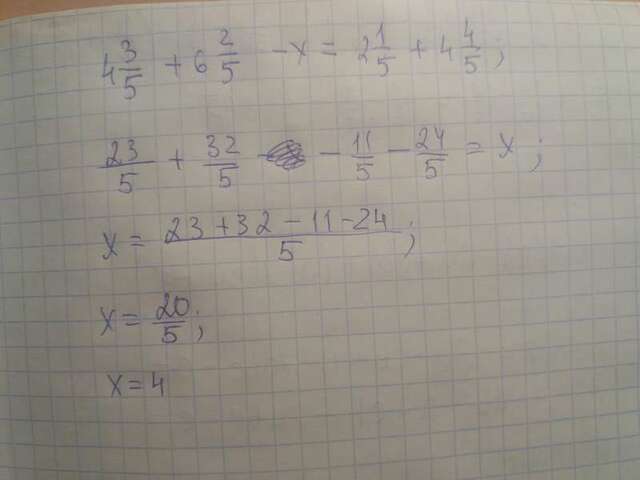 4 3/5 + 6 2/5 - x = 2 1/5 + 4 4/5;
23/5 + 32/5 - 11/5 - 24/5 = x;
x = (23 + 32 - 11 - 24)/5;
x = 20/5;
x = 4